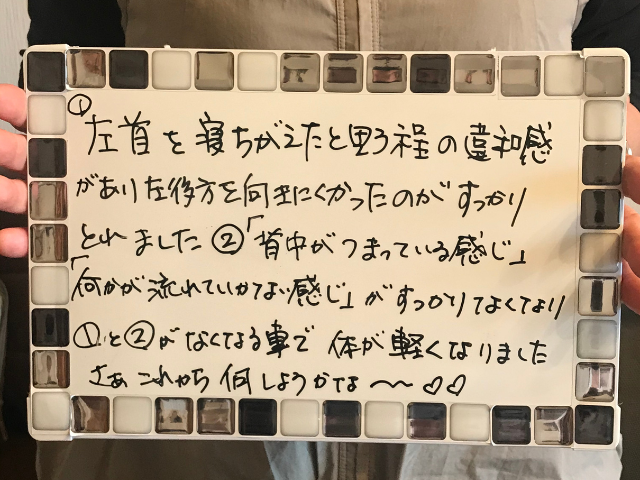 ①左首を寝ちがえたと思う程の違和感
があり左後方を向きにくかったのがすっかり
とれました②「背中がつまっている感じ」
「何かが流れていかない感じ」がすっかりなくなり
①と②がなくなる事で体が軽くなりました
さあこれから何しようかな〜〜♡♡